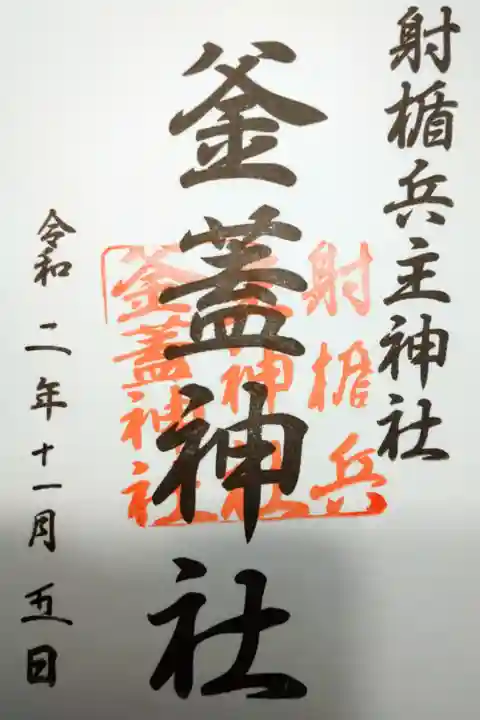 射楯兵主神社
釜蓋神社
令和二年十一月五日
射楯兵
主神社
釜蓋神社